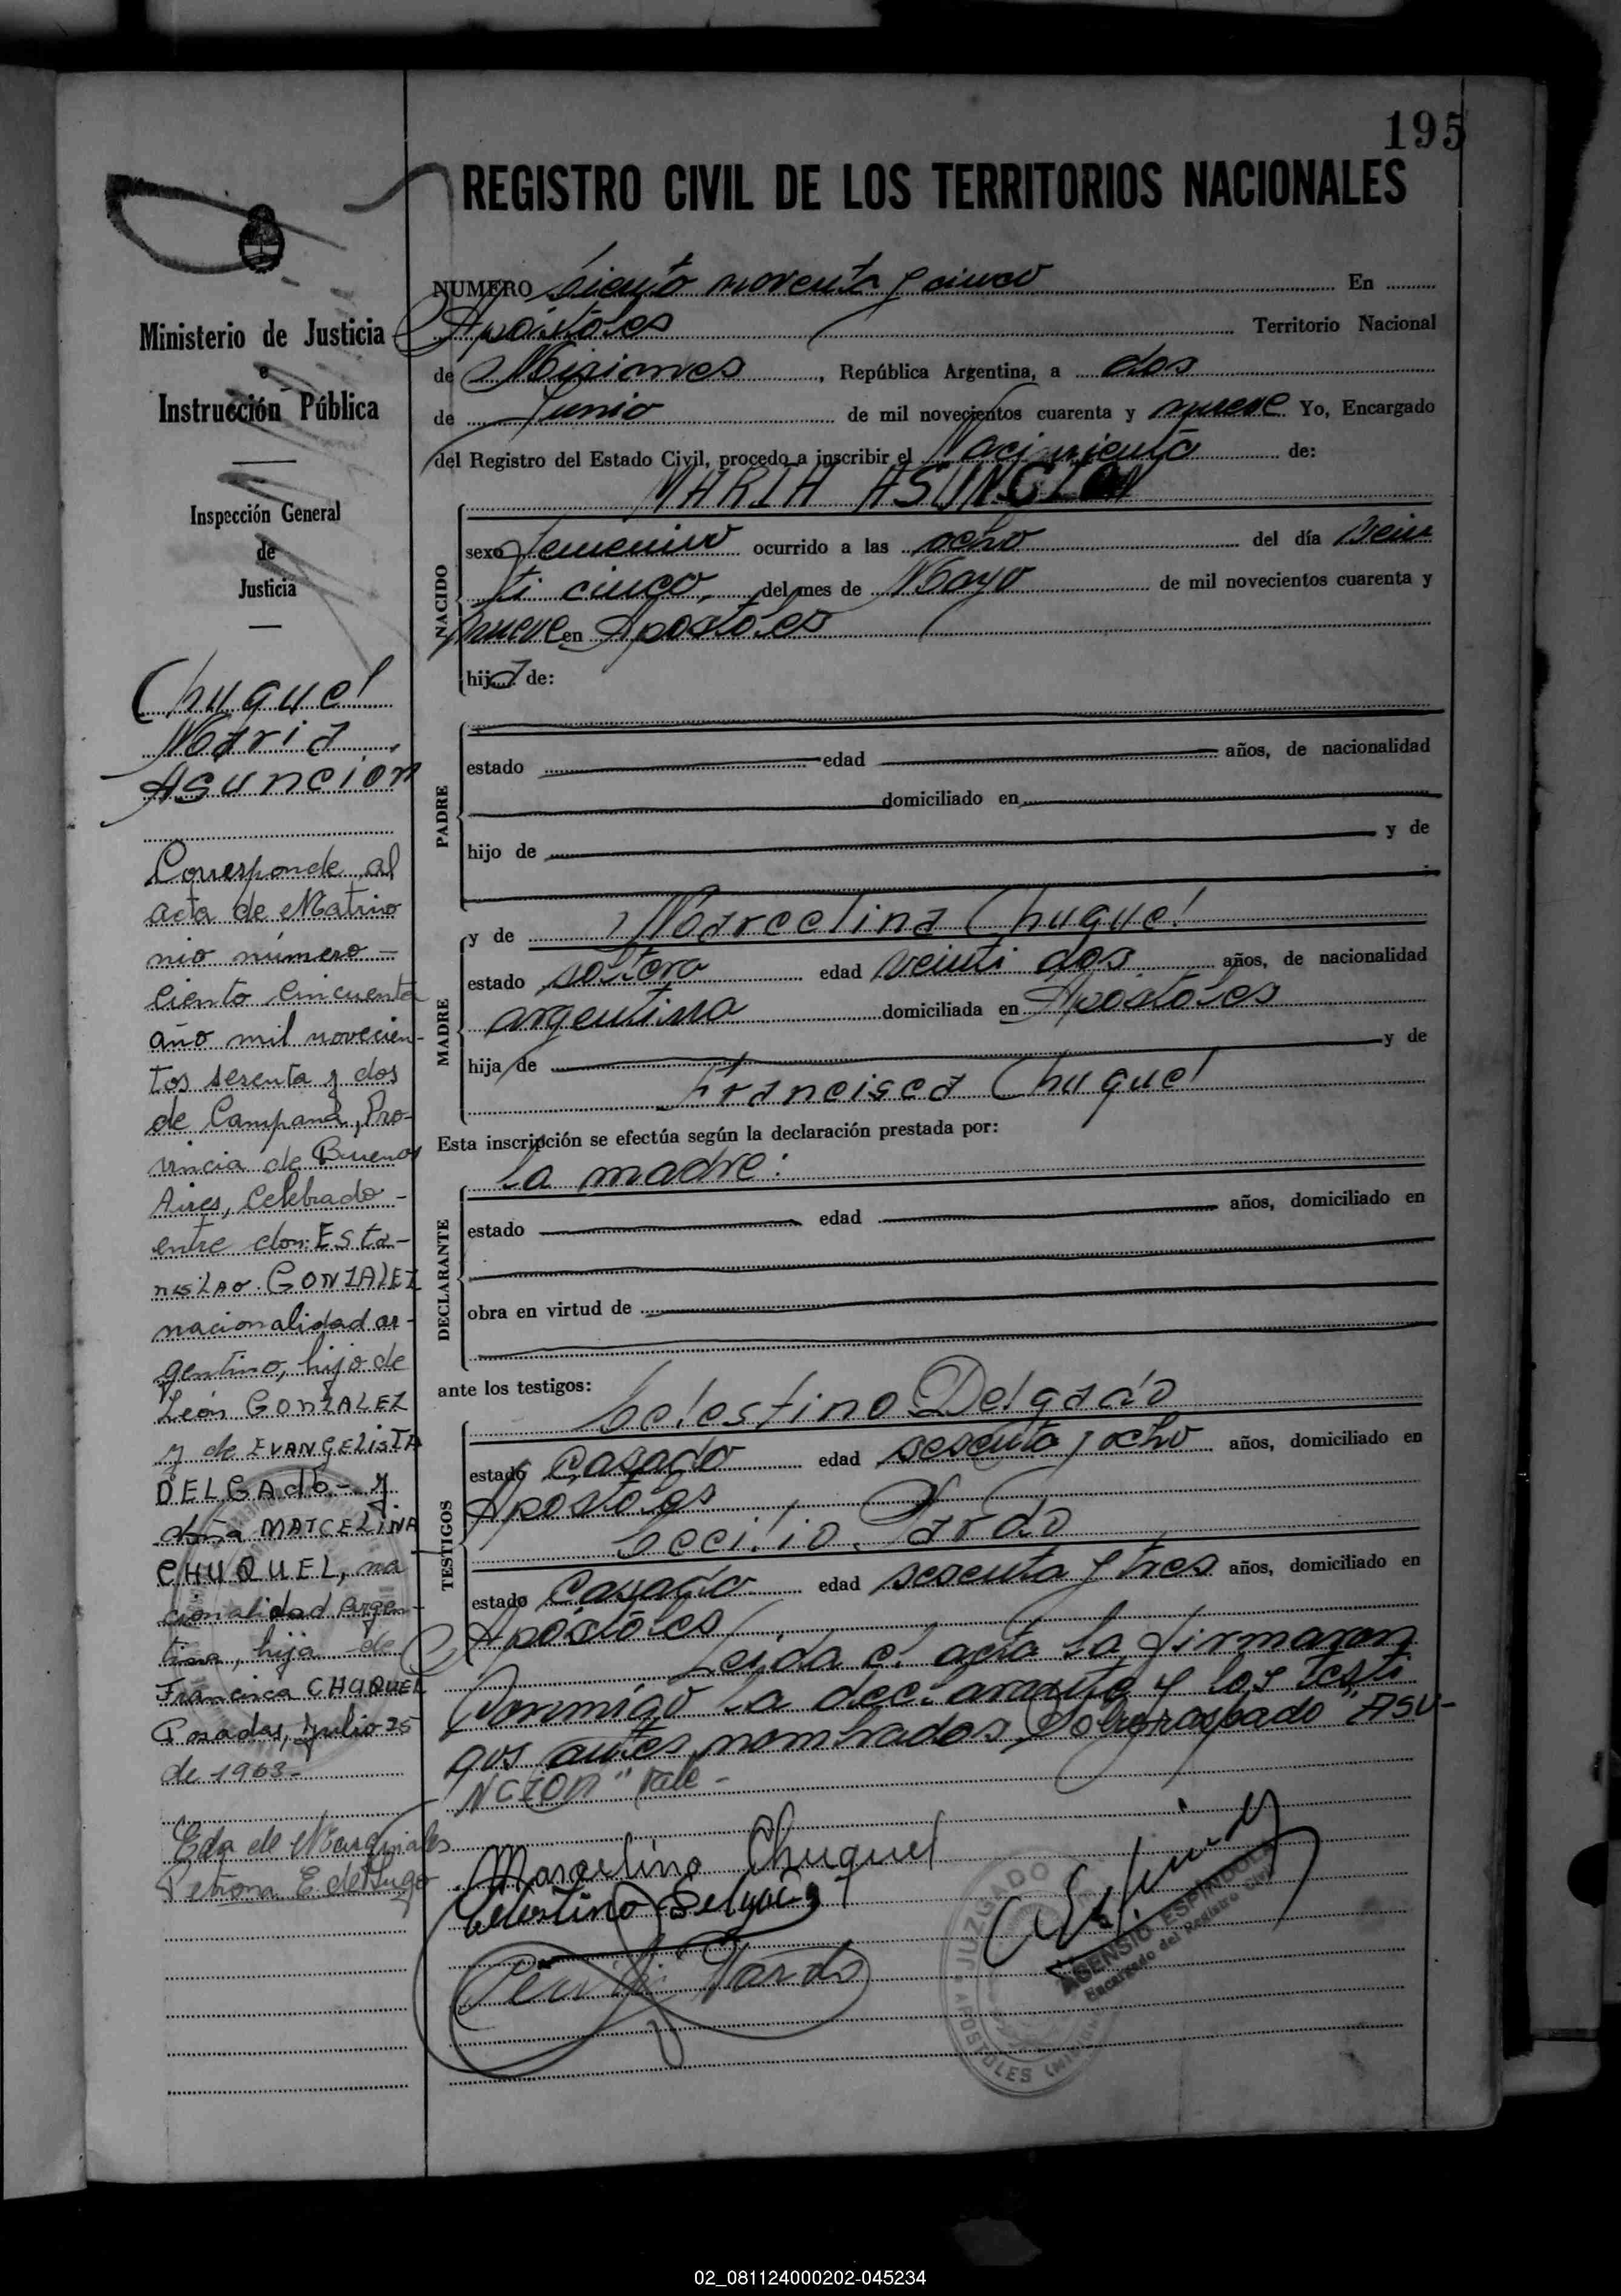 195
REGISTRO CIVIL DE LOS TERRITORIOS NACIONALES
Ministerio de Justicia
e
Instrucción Pública
Inspección General
de
Justicia
Chuquel
Maria
Asuncion
Corresponde al
acta de Matrimo
nio número -
Ciento Cincuenta
año mil novecien-
tos sesenta y dos
de Campana, Pro-
vincia de Buenos
Aires, Celebrado -
entre don: ESta-
nisLAo. GONZALEZ
nacionalidad ar-
gentino, hijo de
León GONZALEZ
y de EVANGELISTA
DELGAdo - y
doña MARCELINA
CHUQUEL, na
cionalidad Argen-
tina, hija de
Francisca CHUQUEL
Posadas, Julio 25
de 1963-
Eda de Marginales
NUMERO Siento noventa y cinco En
Apóstoles Territorio Nacional
de Misiones, República Argentina, a dos
de Junio de mil novecientos cuarenta y nueve Yo, Encargado
del Registro del Estado Civil, procedo a inscribir el Nacimiento de:
MARIA ASUNCION
NACIDO
sexo femenino ocurrido a las ocho del día Vein
ti cinco, del mes de Mayo de mil novecientos cuarenta y
nueve en Apostoles
hija de:
PADRE
estado edad años, de nacionalidad
domiciliado en
hijo de y de
MADRE
y de Marcelina Chuquel
estado soltera edad veinti dos años, de nacionalidad
argentina domiciliada en Apostoles
hija de y de
Francisca Chuquel
Esta inscripción se efectúa según la declaración prestada por:
La madre:
DECLARANTE
estado edad años, domiciliado en
obra en virtud de
ante los testigos:
TESTIGOS
Celestino Delgado
estado Casado edad sesenta y ocho años, domiciliado en
Apostoles
Cecilio Pardo
estado Casado edad sesenta y tres años, domiciliado en
Apóstoles
Leida el acta la firmaron
Conmigo la declarante y los testi
gos antes nombrados Sobreraspado "ASU-
NCION" Vale -
Marcelina Chuquel
Celestino Delgado
Pardo
JUZGADO
APOSTOLES
ASENSIO ESPINDOLA
Encargado del Registro Civil
02_081124000202-045234